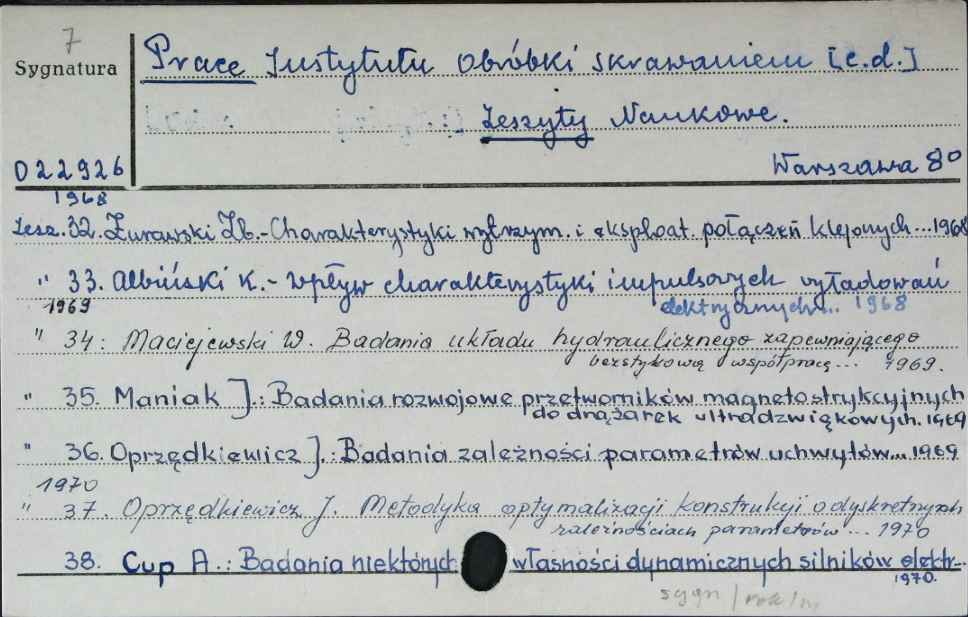 7
Sygnatura
Prace Instytutu Obróbki skrawaniem [c.d.]
Zeszyty Naukowe.
O22926
Warszawa 8º
1968
Zesz. 32. Żurawski Zb. - Charakterystyki wytrzym. i eksploat. połączeń klejonych ... 1968
" 33. Albiński K. - Wpływ charakterystyki impulsowych wyładowań
elektrycznych... 1968
1969
" 34: Maciejewski W. Badania układu hydraulicznego zapewniającego
bezstykową współpracę... 1969.
" 35. Maniak J.: Badania rozwojowe przetworników magnetostrykcyjnych
do drążarek ultradźwiękowych. 1969
" 36. Oprzędkiewicz J.: Badania zależności parametrów uchwytów... 1969
1970
" 37. Oprzędkiewicz J. Metodyka optymalizacji konstrukcji o dyskretnych
zależnościach parametrów... 1970
38. Cup A.: Badania niektórych własności dynamicznych silników elektr...
1970.
sygn / rok /